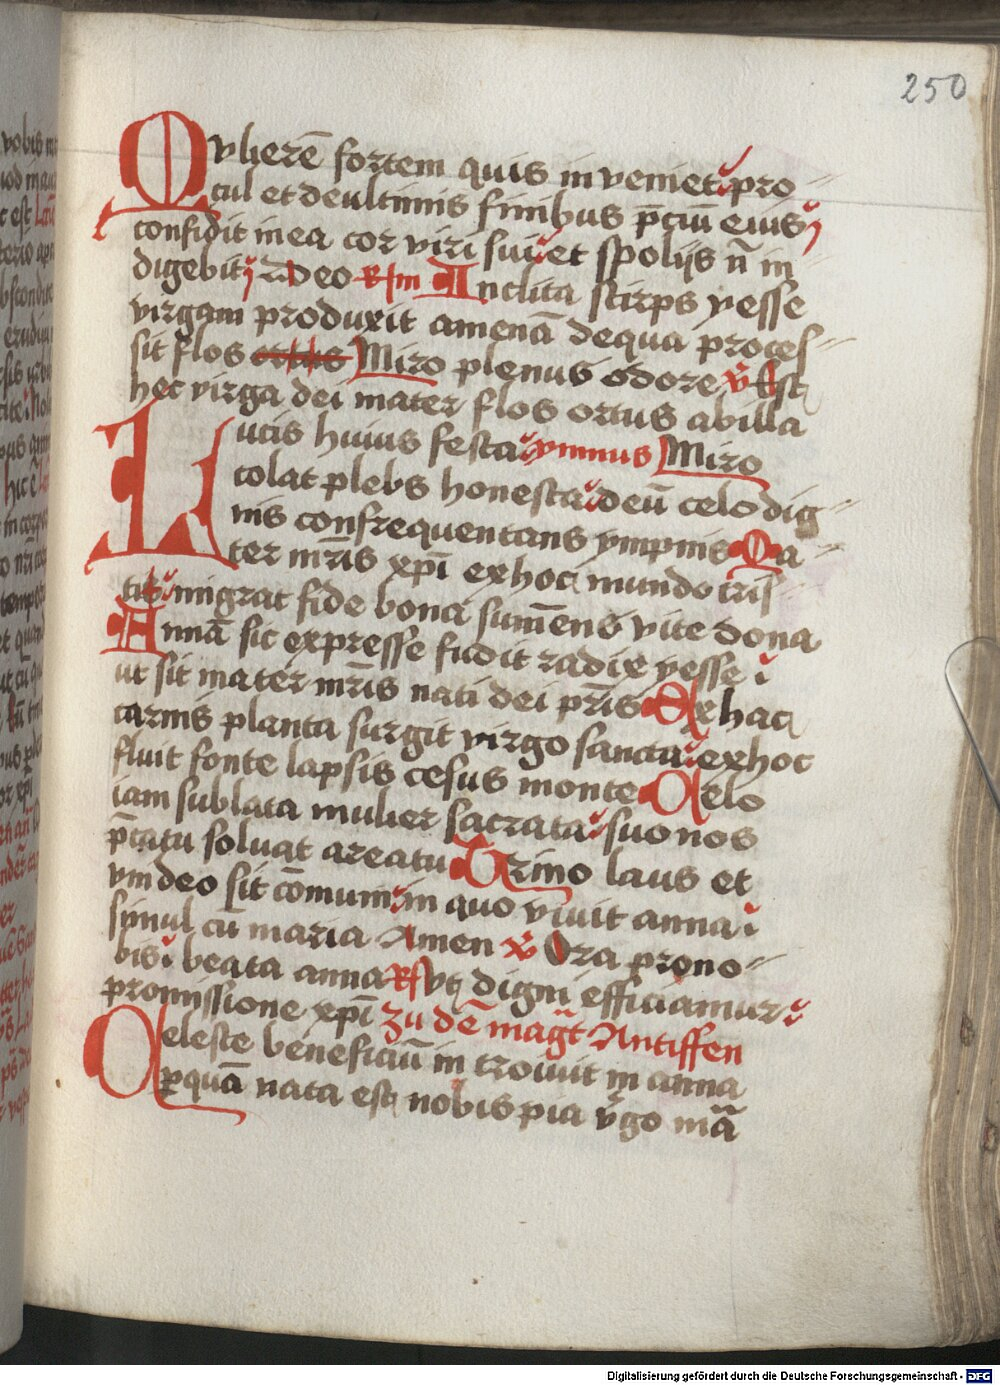 250
Mvlierē fortem quis inveniet pro
cul et deultimis finibus p̄ciū eius
confidit in ea cor viri sui et spolijs nō in
digebit Adeo Rm Inclita stirps yesse
virgam produxit amenā dequa proces
sit flos ortus Miro plenus odore v̄ Est
hec virga dei mater flos ortus abilla
Lucis huius festa ymnus Miro
colat plebs honesta deū celo dig
nis confrequentans ympnis Ma
ter mr̄is xp̄i exhoc mundo tris
tis migrat fide bona sumens vite dona
Annā sic expresse fudit radix yesse
ut sit mater mr̄is nati dei pr̄is Ex hac
carnis planta surgit virgo sancta exhoc
fluit fonte lapsis cesus monte Celo
iam sublata mulier sacrata suo nos
p̄catu soluat areatu Trino laus et
vni deo sit cōmuni in quo vivit anna
simul cū maria Amen v̄ Ora prono
bis beata anna Rs vt digni efficiamur
promissione xp̄i zu dē maḡt Antiffen
Celeste beneficiū in troiuit in anna
p̱quā nata est nobis pia v̄go mā
Digitalisierung gefördert durch die Deutsche Forschungsgemeinschaft - DFG